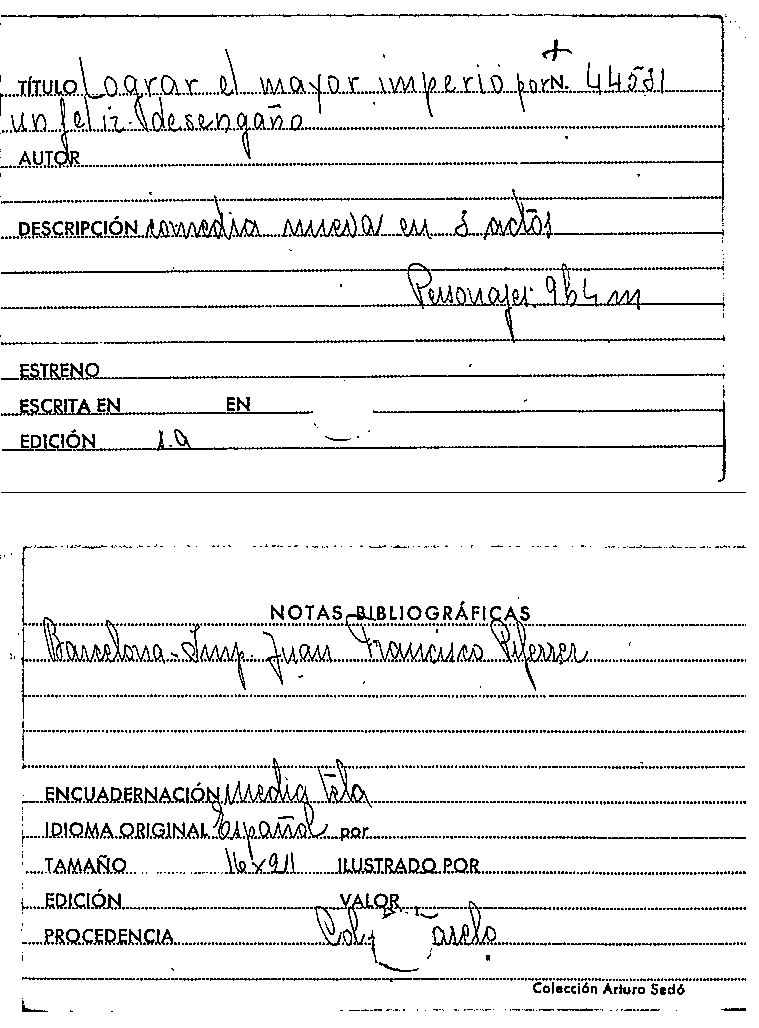 TÍTULO Lograr el mayor imperio por N. 44531
un feliz desengaño
AUTOR
DESCRIPCIÓN comedia nueva en 3 actos
Personajes: 9 h 4 m
ESTRENO
ESCRITA EN EN
EDICIÓN 1.a
NOTAS BIBLIOGRÁFICAS
Barcelona - Imp. Juan Francisco Piferrer
ENCUADERNACIÓN media tela
IDIOMA ORIGINAL Español por
TAMAÑO ILUSTRADO POR
EDICIÓN VALOR
PROCEDENCIA
Colección Arturo Sedó